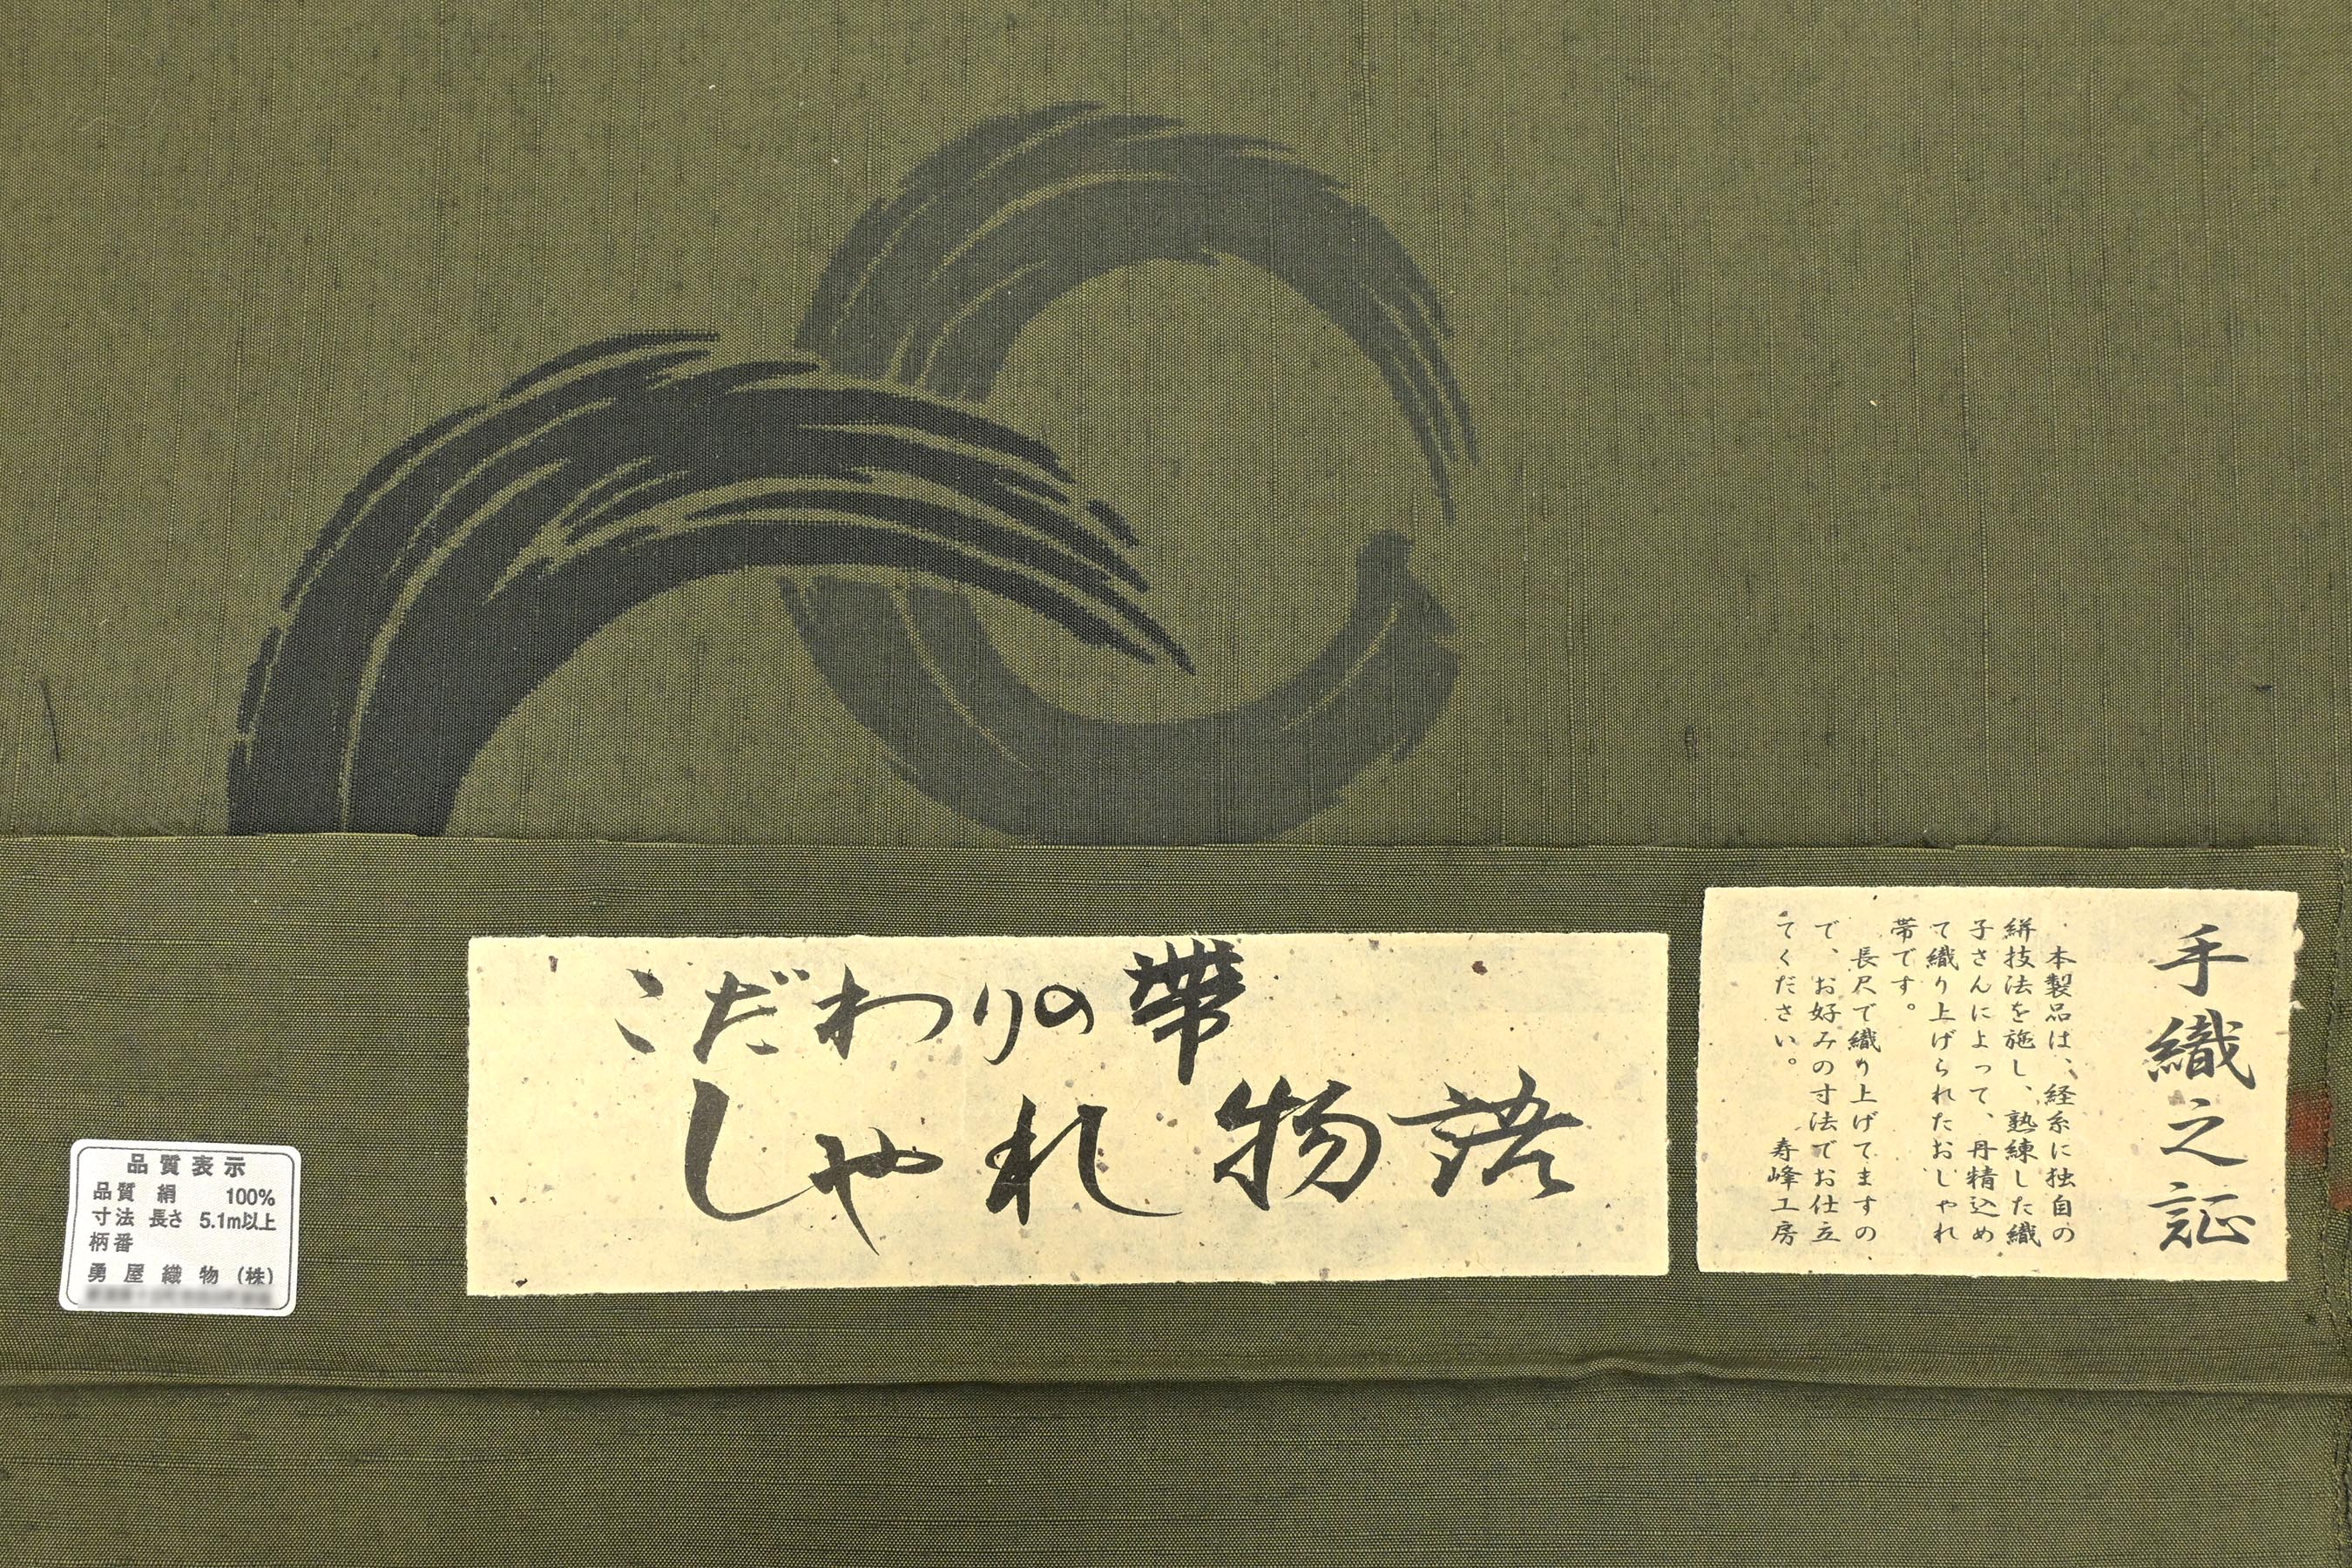 こだわりの帶
しゃれ物語
手織之証
本製品は、経糸に独自の
絣技法を施し、熟練した織
子さんによって、丹精込め
て織り上げられたおしゃれ
帯です。
長尺で織り上げてますの
で、お好みの寸法でお仕立
てください。
寿峰工房
品質表示
品質 絹 100%
寸法 長さ 5.1m以上
柄番
勇屋織物(株)